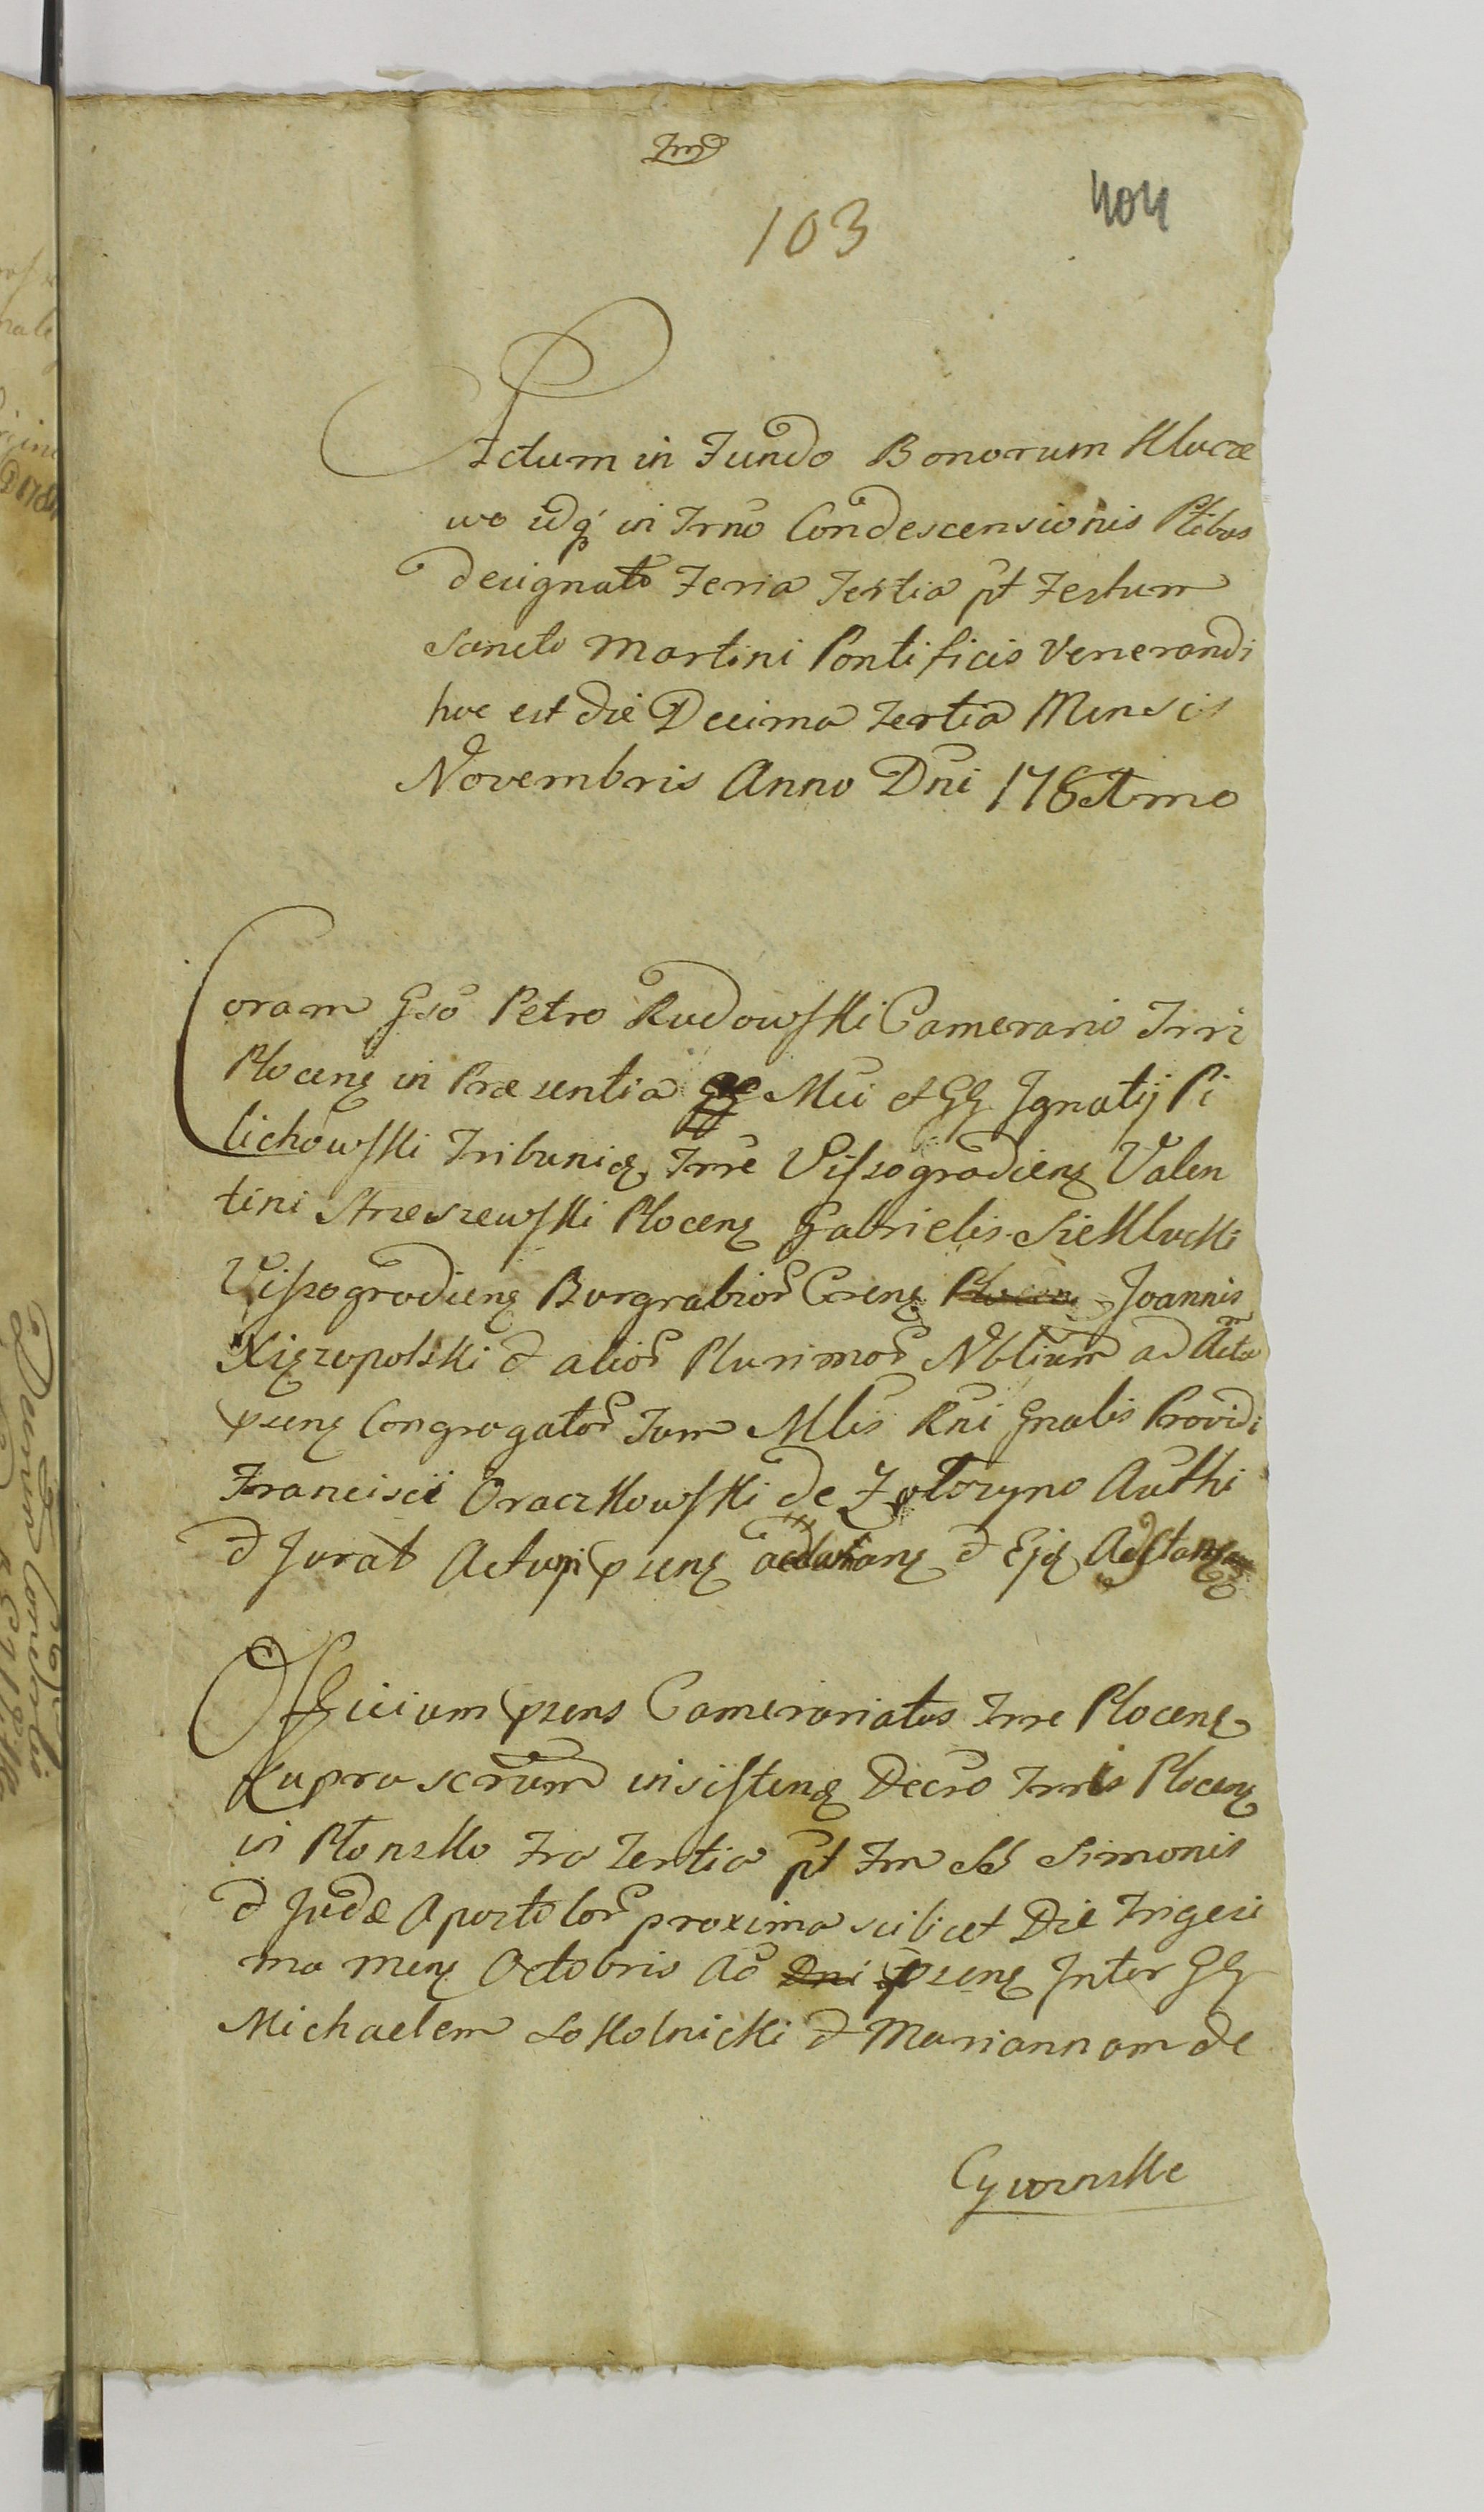 103
404
Actum in Fundo Bonorum Klucze
wo idq in Trno Condescensionis Ptibus
designato Feria Tertia pt Festum
Sancti Martini Pontificis Venerandi
hoc est die Decima tertia Mensis
Novembris Anno Dni 178
Coram Gso Petro Rudowski Camerario Trri
Plocens in Praesentia Mci et GG Ignatij Pi
lichowski Tribuni Trre Viszogradiens Valen
tini Strzeszewski Plocens Gabrielis Siekłucki
Viszogradiens Burgrabior Crens Plocens Joannis
Xięzopolski & alior Plurimor Nbliūm ad Acta
psens Congregator Tum Mlis Rni Gnalis Providi
Francisci Oraczkowski de Authi
& Jurat Actum psens & Ejq
Officium psens Camerariatus Trre Plocens
supra scrum insistens Decro Trris Plocens
in Płonsko Fra Tertia pt Fm SS Simonis
& Judae Apostolor proxima scilicet Die Trigesi
ma mens Octobris Ao Dni psens Inter GG
Michaelem Sokolnicki & Mariannam de
Cywinskie